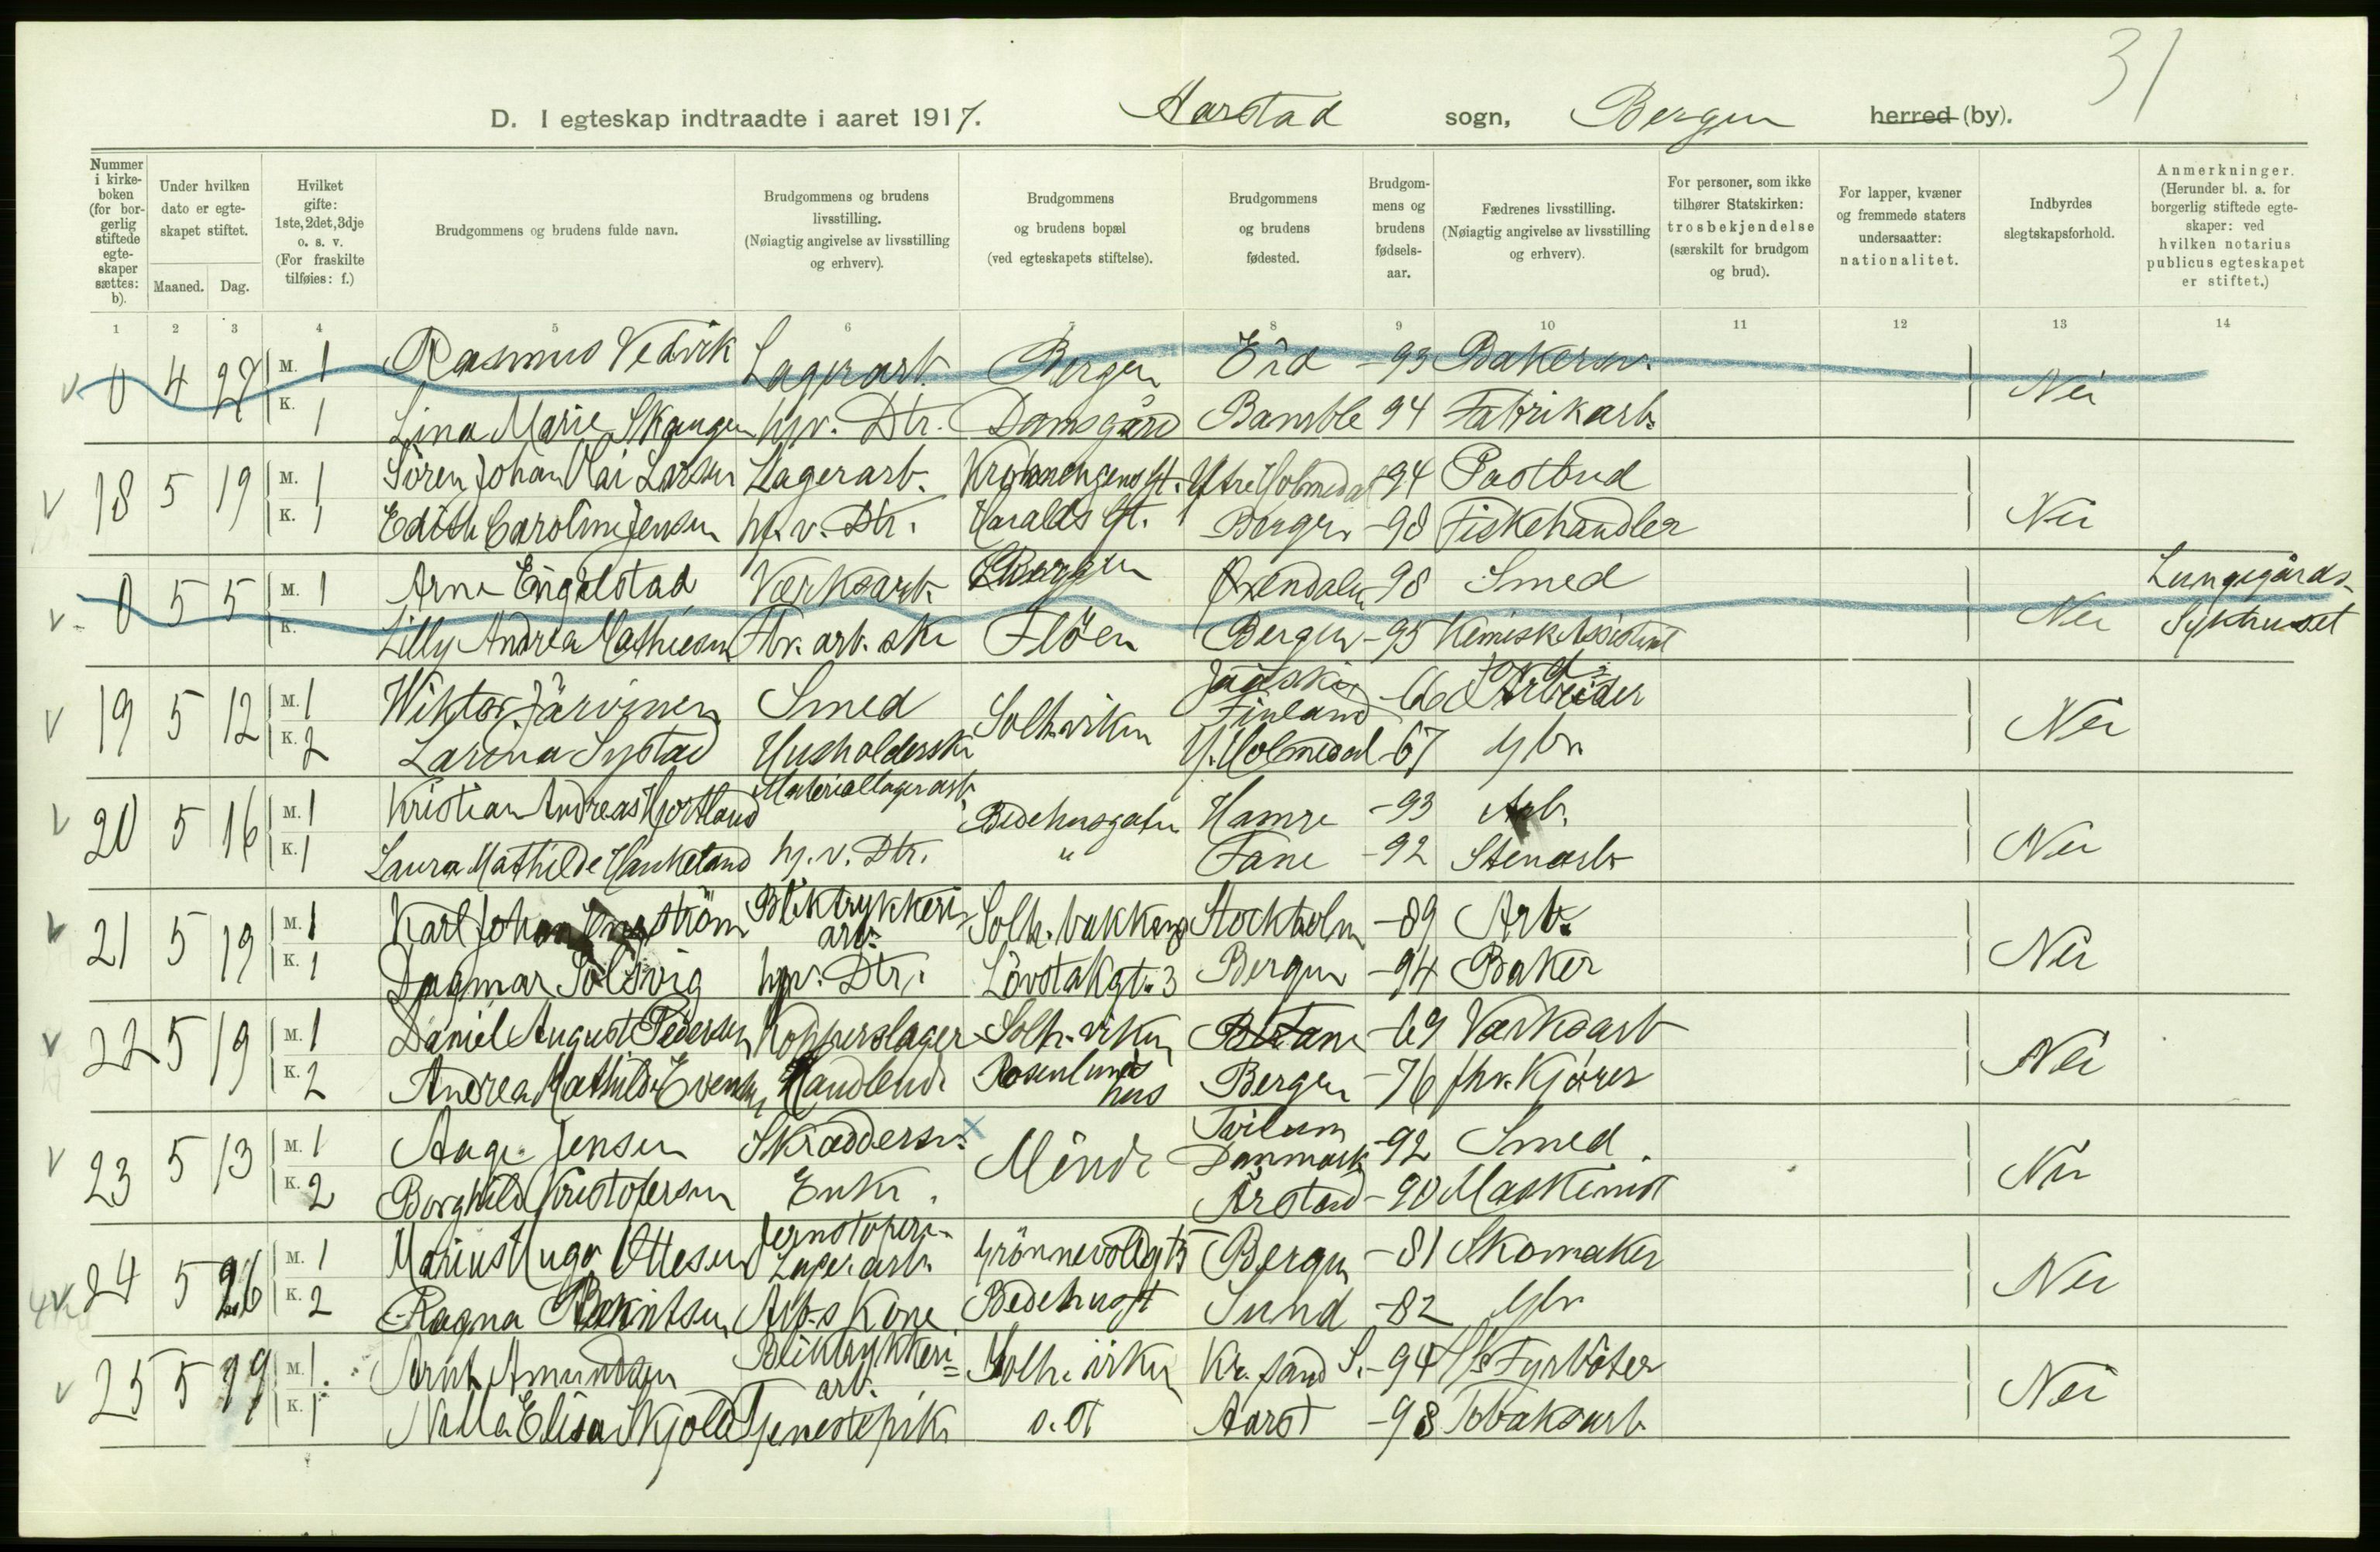 31
D. I egteskap indtraadte i aaret 1917. Aarstad sogn, Bergen herred (by).
Nummer i kirke-boken (for bor-gerlig stiftede egte-skaper sættes: b). Under hvilken dato er egte-skapet stiftet. Maaned. Dag. Hvilket gifte: 1ste, 2det, 3dje o. s. v. (For fraskilte tilføies: f.) Brudgommens og brudens fulde navn. Brudgommens og brudens livsstilling. (Nøiagtig angivelse av livsstilling og erhverv). Brudgommens og brudens bopæl (ved egteskapets stiftelse). Brudgommens og brudens fødested. Brudgom-mens og brudens fødsels-aar. Fædrenes livsstilling. (Nøiagtig angivelse av livsstilling og erhverv). For personer, som ikke tilhører Statskirken: trosbekjendelse (særskilt for brudgom og brud). For lapper, kvæner og fremmede staters undersaatter: nationalitet. Indbyrdes slegtskapsforhold. Anmerkninger. (Herunder bl. a. for borgerlig stiftede egte-skaper: ved hvilken notarius publicus egteskapet er stiftet.)
1 2 3 4 5 6 7 8 9 10 11 12 13 14
0 4 27 M. 1 Rasmus Vedvik Lagerarb. Bergen Eid -93 Bakersv. Nei
K. 1 Lina Marie Skaugen hjv. Dtr. Damsgård Bamble 94 Fabrikarb.
18 5 19 M. 1 Sören Johan Olai Larsen Lagerarb. Ytre Holmedal -94 Postbud Nei
K. 1 Edith Caroline Jensen hj. v. Dtr. Haralds gt. Bergen -98 Fiskehandler
0 5 5 M. 1 Arne Engelstad Værksarb. Bergen Øxendalen -98 Smed Nei Lungegårds-
K. 1 Lilly Andrea Mathiesen Fbr. arb. ske Flöen Bergen -95 Kemisk Assistent Sykehuset
19 5 12 M. 1 Wiktor Järvinen Smed Solh.viken Jääski Finland -66 Arbeider Nei
K. 2 Larina Systad Husholderske Y. Holmedal -67 Gbr.
20 5 16 M. 1 Kristian Andreas Hjortland Materiallagerarb. Bedehusgaten Hamre -93 Arb. Nei
K. 1 Laura Mathilde Haukeland hj. v. Dtr. " Fane -92 Stenarb.
21 5 19 M. 1 Karl Johan Bliktrykkeri arb. Solh.bakken Stockholm -89 Arb. Nei
K. 1 Dagmar Solsvig hjv. Dtr. Lövstakgt. 3 Bergen -94 Baker
22 5 19 M. 1 Daniel August Pedersen Kopperslager Solh.viken Fane -69 Værksarb. Nei
K. 2 Andrea Mathilde Evensen Handlende Rosenlunds hus Bergen -76 fhv. Kjörer
23 5 13 M. 1 Aage Jensen Skræddersv. x Minde Tvilum Danmark -92 Smed Nei
K. 2 Borghild Kristofersen Enke. Årstad -90 Maskinist
24 5 26 M. 1 Marius Hugo Ottesen Jernstöperi- Lager.arb. Grönnevoldgt 5 Bergen -81 Skomaker Nei
K. 2 Ragna Arb.s Kone Bedehusgt Sund -82 Gbr
25 5 19 M. 1 Arnt Amundsen Bliktrykkeri= arb. Solh.viken Kr.sand S. -94 Fyrböter Nei
K. 1 Nella Elisa Skjold Tjenestepike s. st Aarst -98 Tobaksarb.